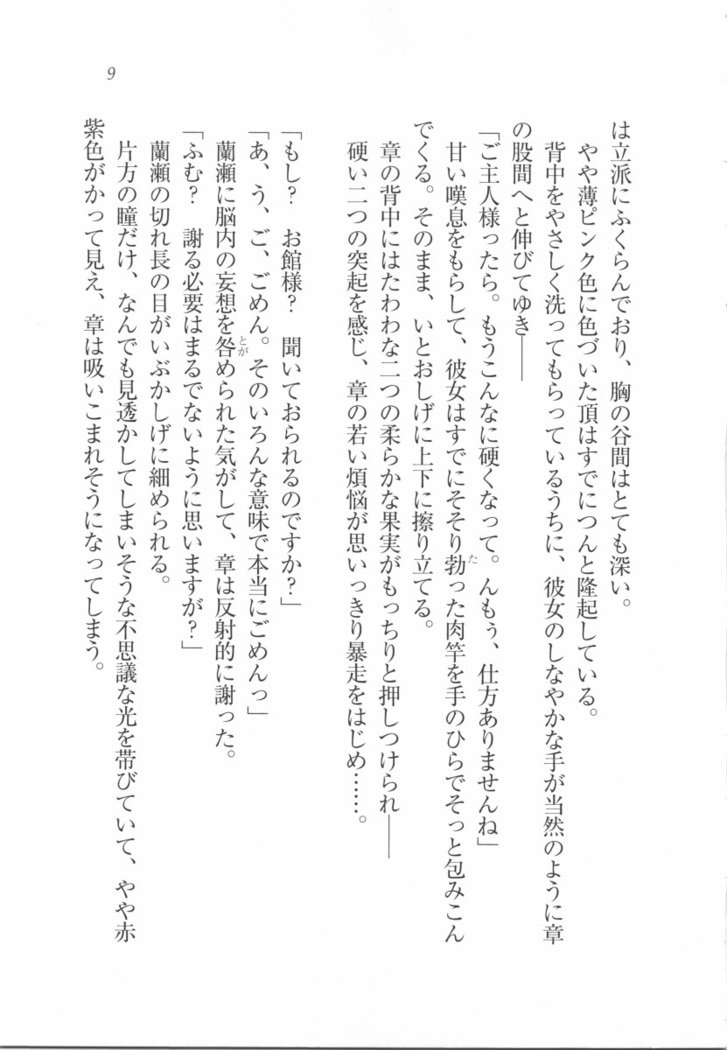 9
は立派にふくらんでおり、胸の谷間はとても深い。
やや薄ピンク色に色づいた頂はすでにつんと隆起している。
背中をやさしく洗ってもらっているうちに、彼女のしなやかな手が当然のように章
の股間へと伸びてゆき――
「ご主人様ったら。もうこんなに硬くなって。んもぅ、仕方ありませんね」
甘い嘆息をもらして、彼女はすでにそそり勃った肉竿を手のひらでそっと包みこん
でくる。そのまま、いとおしげに上下に擦り立てる。
章の背中にはたわわな二つの柔らかな果実がもっちりと押しつけられ――
硬い二つの突起を感じ、章の若い煩悩が思いっきり暴走をはじめ……。
「もし？　お館様？　聞いておられるのですか？」
「あ、う、ご、ごめん。そのいろんな意味で本当にごめんっ」
蘭瀬に脳内の妄想を咎められた気がして、章は反射的に謝った。
「ふむ？　謝る必要はまるでないように思いますが？」
蘭瀬の切れ長の目がいぶかしげに細められる。
片方の瞳だけ、なんでも見透かしてしまいそうな不思議な光を帯びていて、やや赤
紫色がかって見え、章は吸いこまれそうになってしまう。